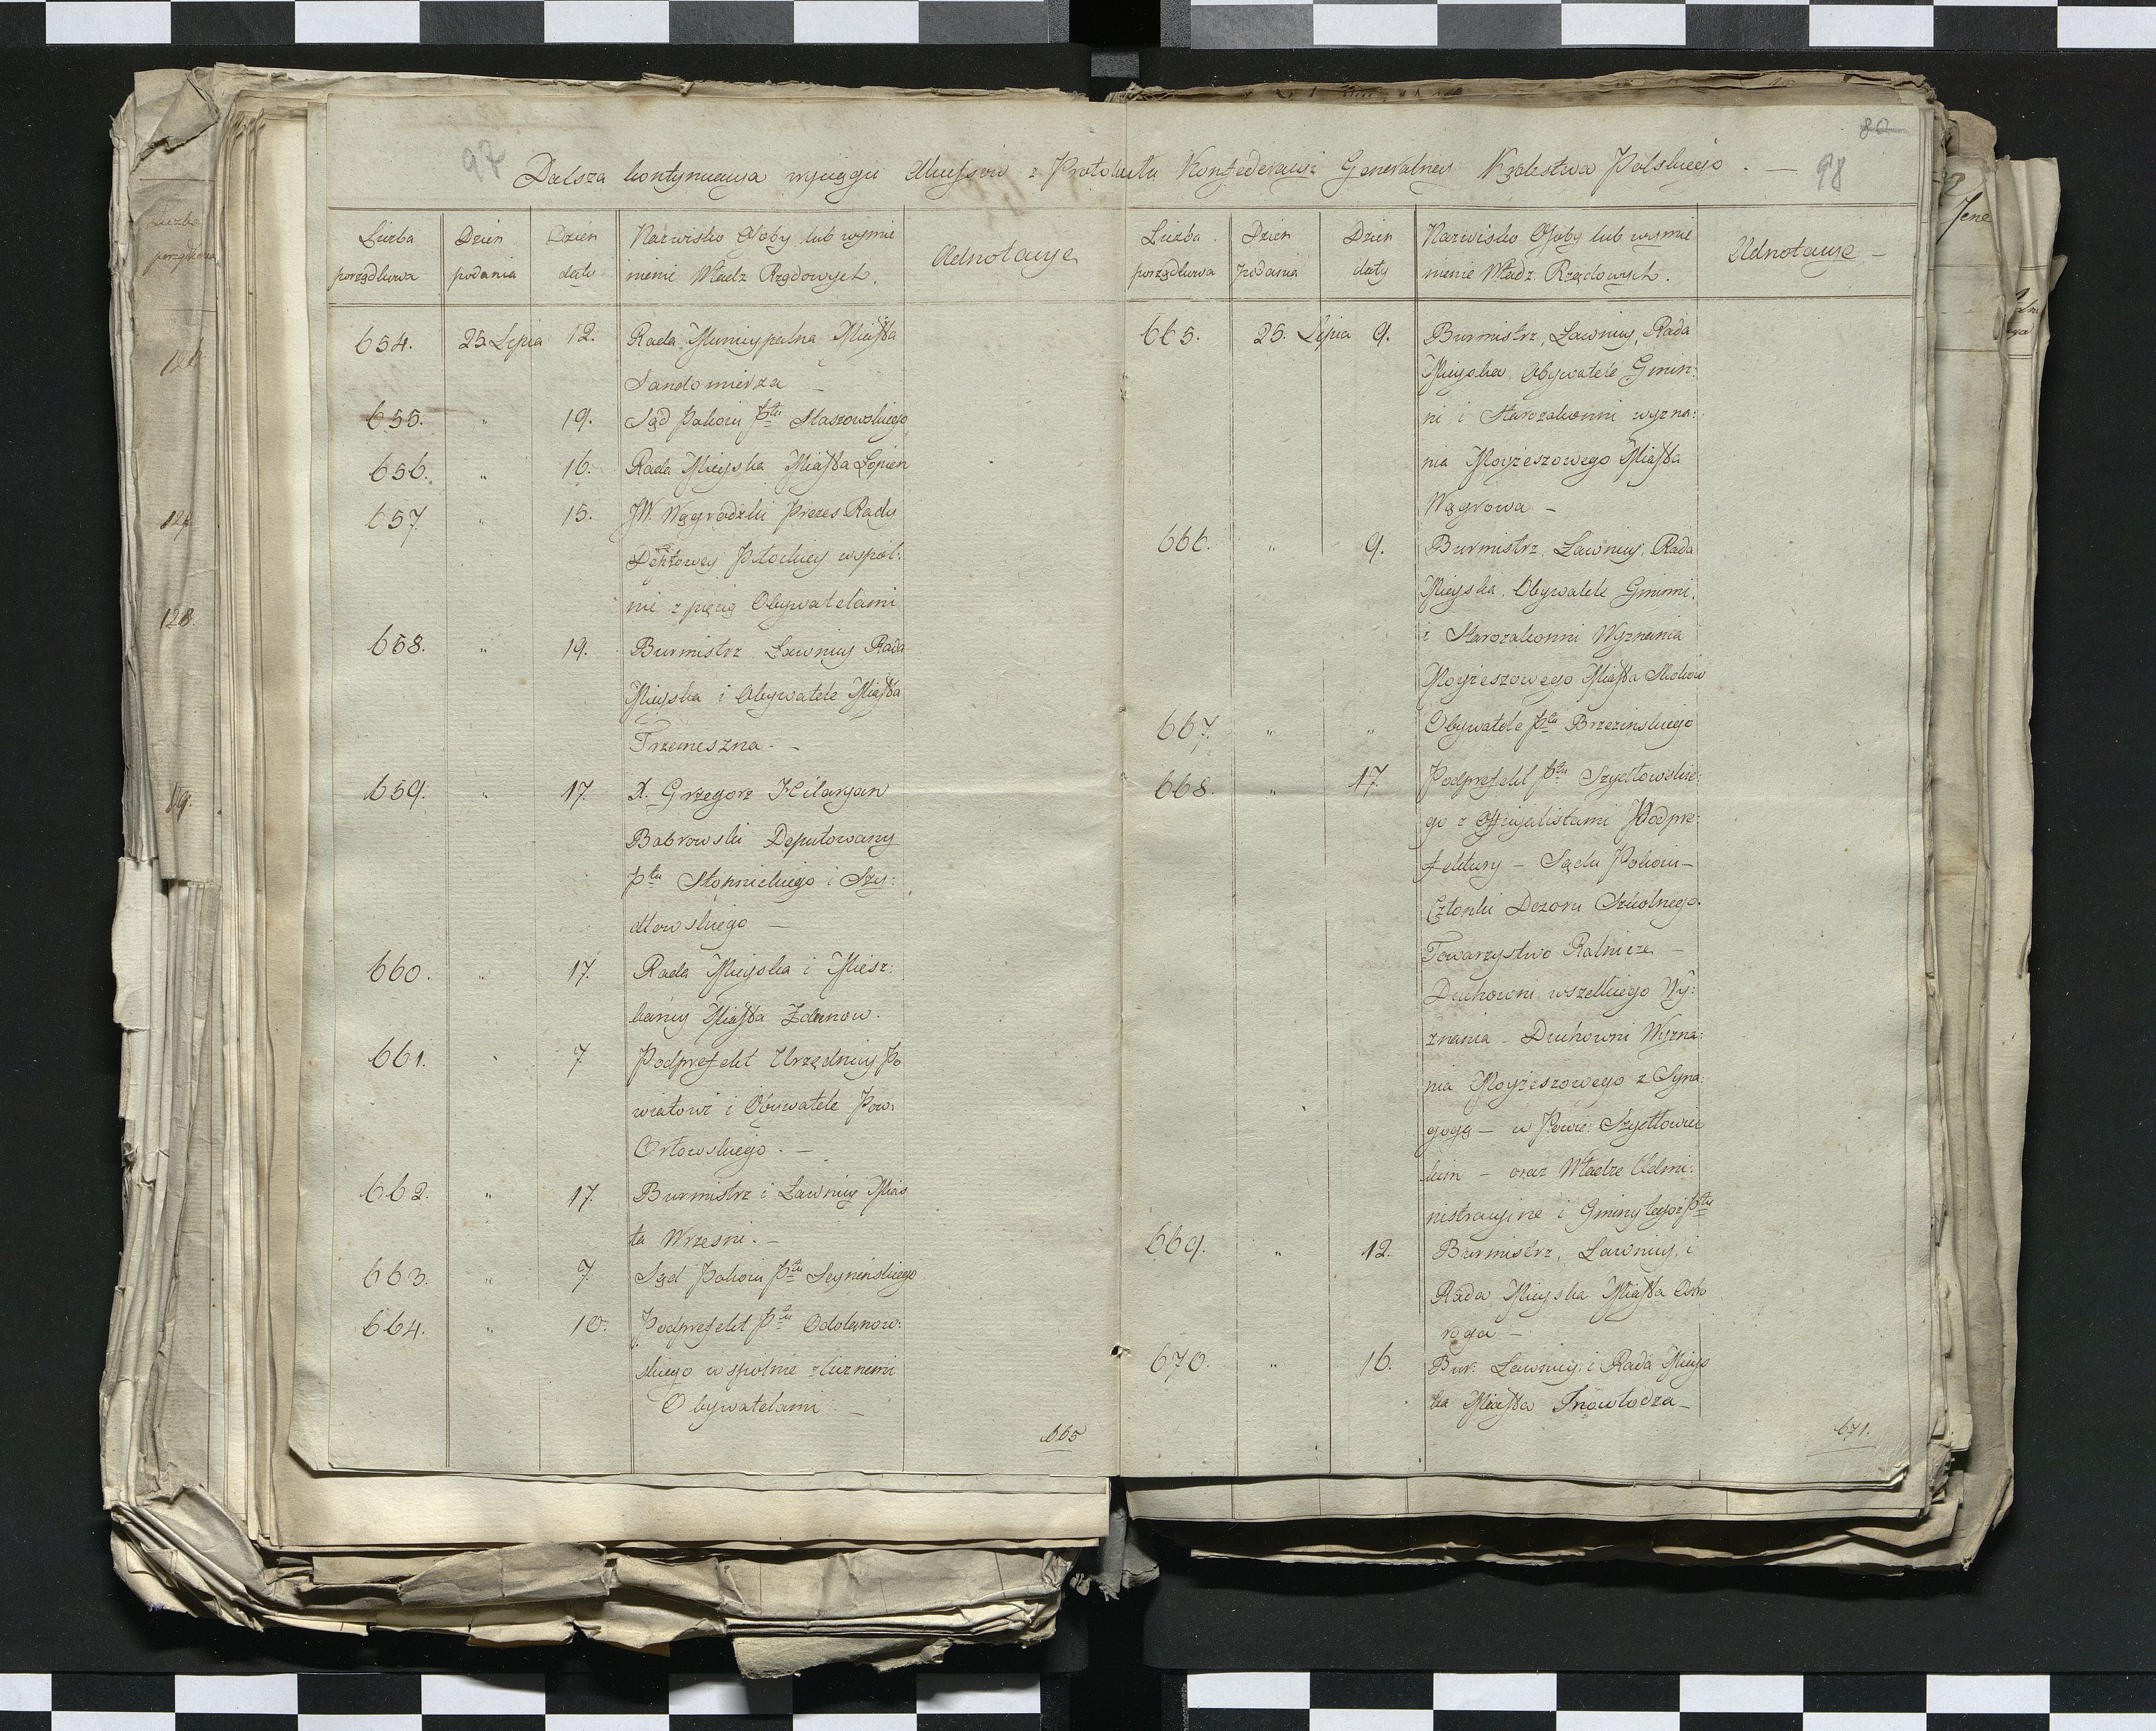 97
80
98
Dalsza kontynuacya wyciągu Akcessów z Protokułu Konfederacyi Generalney Królestwa Polskiego. —
Liczba porządkowa
Dzien podania
Dzien daty
Nazwisko Osoby lub wymie
nienie Władz Rządowych.
Adnotacye
654. 25. Lipca 12. Rada Municypalna Miasta
Sandomierza —
655. " 19. Sąd Pokoiu Ptu Staszowskiego
656. " 16. Rada Mieyska Miasta Łopien
657. " 15. JW. Wągrodzki Prezes Rady
Deptowey Płockiey wspol:
nie z pięcią Obywatelami
658. " 19. Burmistrz Ławnicy Rada
Mieyska i Obywatele Miasta
Trzemeszna. —
659. " 17. X. Grzegorz Hilaryan
Bobrowski Deputowany
ptu Stopnickiego i Szy:
dłowskiego —
660. " 17. Rada Mieyska i Miesz:
kańcy Miasta Zdunow.
661. " 7 Podprefekt Urzędnicy Po
wiatowi i Obywatele Pow:
Orłowskiego. —
662. " 17. Burmistrz i Ławnicy Mias
ta Wrzesni. —
663. " 7. Sąd Pokoiu Ptu Seynenskiego
664. " 10. Podprefekt Ptu Odolanow:
skiego wspolnie z licznemi
Obywatelami —
665
Liczba porządkowa
Dzien podania
Dzien daty
Nazwisko Osoby lub wymie
nienie Władz Rządowych.
Adnotacye —
665. 25. Lipca 9. Burmistrz, Ławnicy, Rada
Mieyska Obywatele Gmin:
ni i Starozakonni wyzna:
nia Moyżeszowego Miasta
Węgrowa —
666. " 9. Burmistrz, Ławnicy, Rada
Mieyska, Obywatele Gminni,
i Starozakonni Wyznania
Moyżeszowego Miasta
667. " " Obywatele ptu Brzezinskiego
668. " 17. Podprefekt ptu Szydłowskie:
go z Officyalistami Podpre:
fektury — Sądu Pokoiu —
Członki Dozoru Szkolnego.
Towarzystwo Rolnicze —
Duchowni wszelkiego Wy:
znania — Duchowni Wyzna:
nia Moyżeszowego z Syna:
gogą — w Powie: Szydłowie
kim — oraz Władze Admi:
nistracyine i Gminy tegoż Ptu
669. " 12. Burmistrz, Ławnicy, i
Rada Mieyska Miasta Ost
roga —
670. " 16. Bur: Ławnicy i Rada Mieys
ka Miasta Inowłodza —
671.